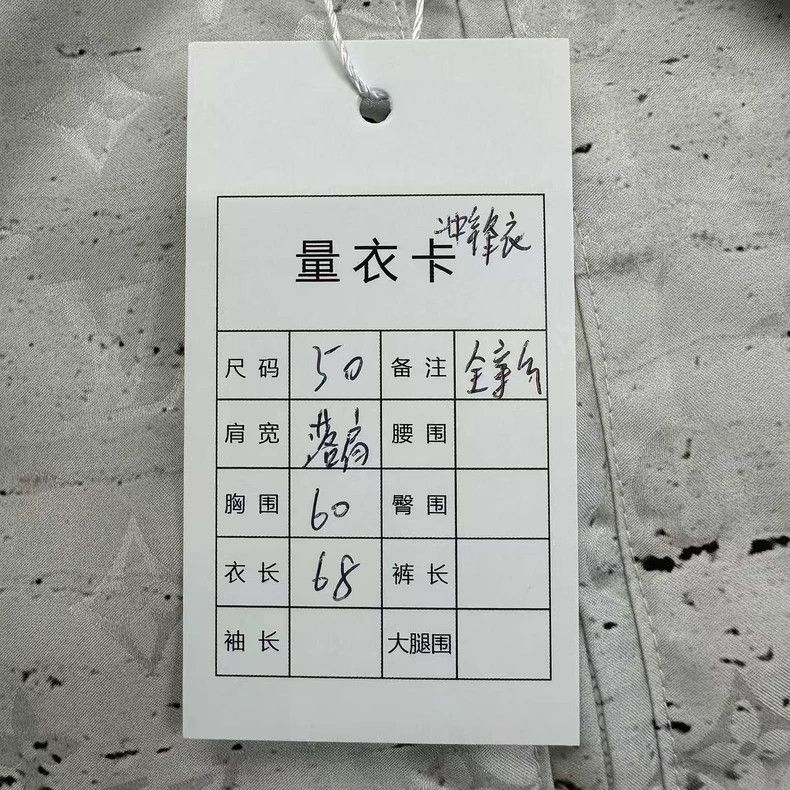 冲锋衣
量衣卡
尺码 50 备注 全新
肩宽 落肩 腰围
胸围 60 臀围
衣长 68 裤长
袖长 大腿围